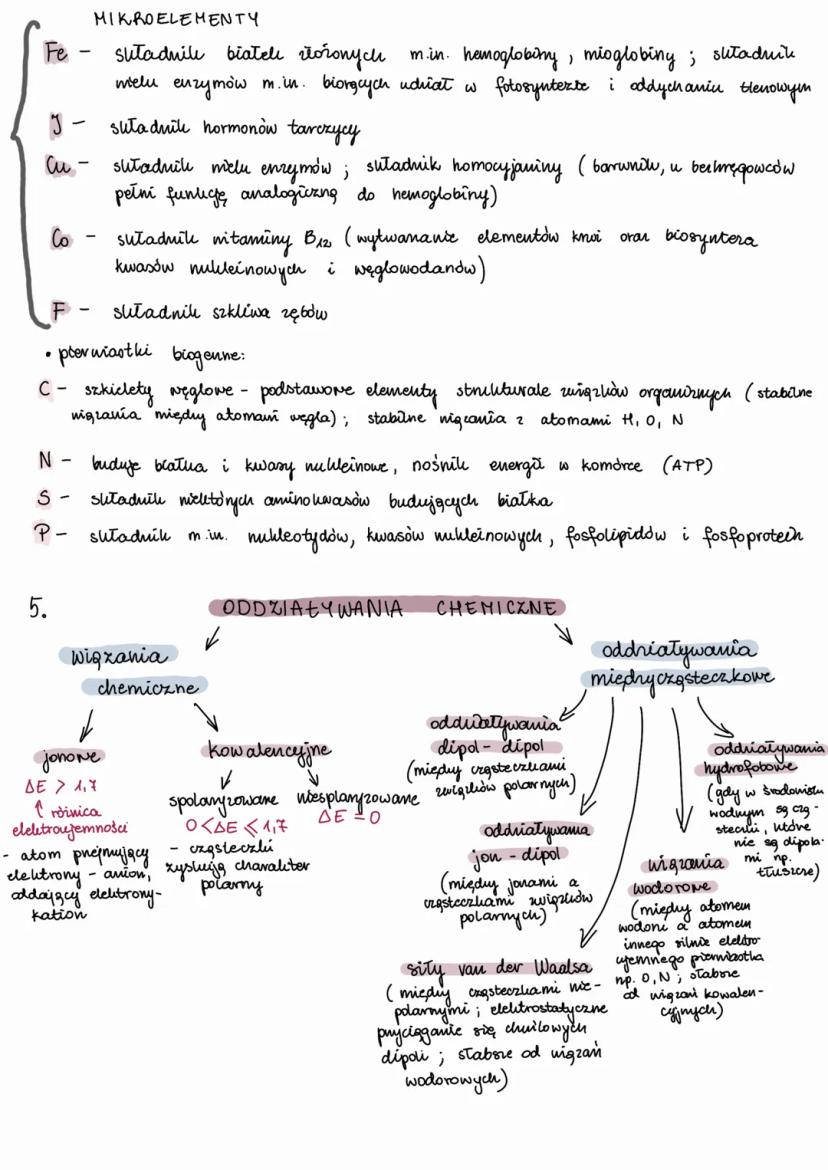 MIKROELEMENTY
Fe - składnik białek złożonych m.in. hemoglobiny, mioglobiny; składnik
wielu enzymów m.in. biorących udział w fotosyntezie i oddychaniu tlenowym
J - składnik hormonów tarczycy
Cu - składnik wielu enzymów; składnik homocyjaniny (barwnik, u bezkręgowców
pełni funkcję analogiczną do hemoglobiny)
Co - składnik witaminy B12 (wytwarzanie elementów krwi oraz biosynteza
kwasów nukleinowych i węglowodanów)
F - składnik szkliwa zębów
• pierwiastki biogenne:
C - szkielety węglowe - podstawowe elementy strukturale związków organicznych (stabilne
wiązania między atomami węgla); stabilne wiązania z atomami H, O, N
N - buduje białka i kwasy nukleinowe, nośnik energii w komórce (ATP)
S - składnik niektórych aminokwasów budujących białka
P - składnik m.in. nukleotydów, kwasów nukleinowych, fosfolipidów i fosfoprotein
5. ODDZIAŁYWANIA CHEMICZNE
wiązania
chemiczne
jonowe
ΔE > 1,7
↑ różnica
elektroujemności
- atom przejmujący
elektrony - anion,
oddający elektrony-
kation
kowalencyjne
spolaryzowane
0 < ΔE ⩽ 1,7
- cząsteczki
zyskują charakter
polarny
niespolaryzowane
ΔE = 0
oddziaływania
międzycząsteczkowe
oddziaływania
dipol - dipol
(między cząsteczkami
związków polarnych)
oddziaływania
jon - dipol
(między jonami a
cząsteczkami związków
polarnych)
siły van der Waalsa
(między cząsteczkami nie-
polarnymi; elektrostatyczne
przyciąganie się chwilowych
dipoli; słabsze od wiązań
wodorowych)
wiązania
wodorowe
(między atomem
wodoru a atomem
innego silnie elektro
ujemnego pierwiastka
np. O, N; słabsze
od wiązań kowalen-
cyjnych)
oddziaływania
hydrofobowe
(gdy w środowisku
wodnym są czą-
steczki, które
nie są dipola-
mi np.
tłuszcze)